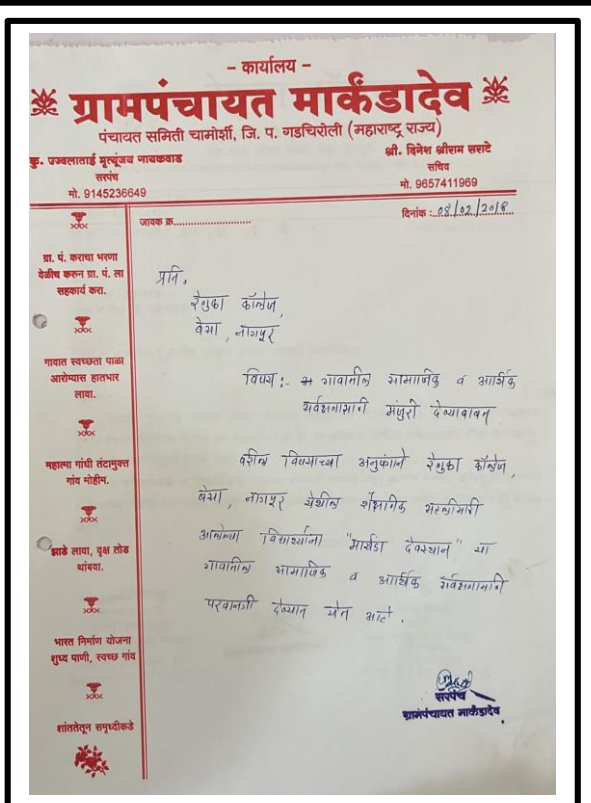 – कार्यालय –
ग्रामपंचायत मार्कंडादेव
पंचायत समिती चामोर्शी, जि. प. गडचिरोली (महाराष्ट्र राज्य)
कु. उज्वलाताई मृत्यूंजय नायकवाड
सरपंच
मो. 9145236649
श्री. दिनेश श्रीराम सराटे
सचिव
मो. 9657411969
जावक क्र..........................
दिनांक : 08/02/2018
ग्रा. पं. कराचा भरणा
वेळीच करुन ग्रा. पं. ला
सहकार्य करा.
गावात स्वच्छता पाळा
आरोग्यास हातभार
लावा.
महात्मा गांधी तंटामुक्त
गांव मोहीम.
झाडे लावा, वृक्ष तोड
थांबवा.
भारत निर्माण योजना
शुध्द पाणी, स्वच्छ गांव
शांततेतून समृध्दीकडे
प्रति,
रेणुका कॉलेज,
बेसा, नागपूर
विषय :- गावातील सामाजिक व आर्थिक
सर्वेक्षणासाठी मंजुरी देण्याबाबत
वरील विषयाच्या अनुषंगाने रेणुका कॉलेज,
बेसा, नागपूर येथील शैक्षणिक सहलीसाठी
आलेल्या विद्यार्थ्यांना "मार्कंडा देवस्थान" या
गावातील सामाजिक व आर्थिक सर्वेक्षणासाठी
परवानगी देण्यात येत आहे.
सरपंच
ग्रामपंचायत मार्कंडादेव